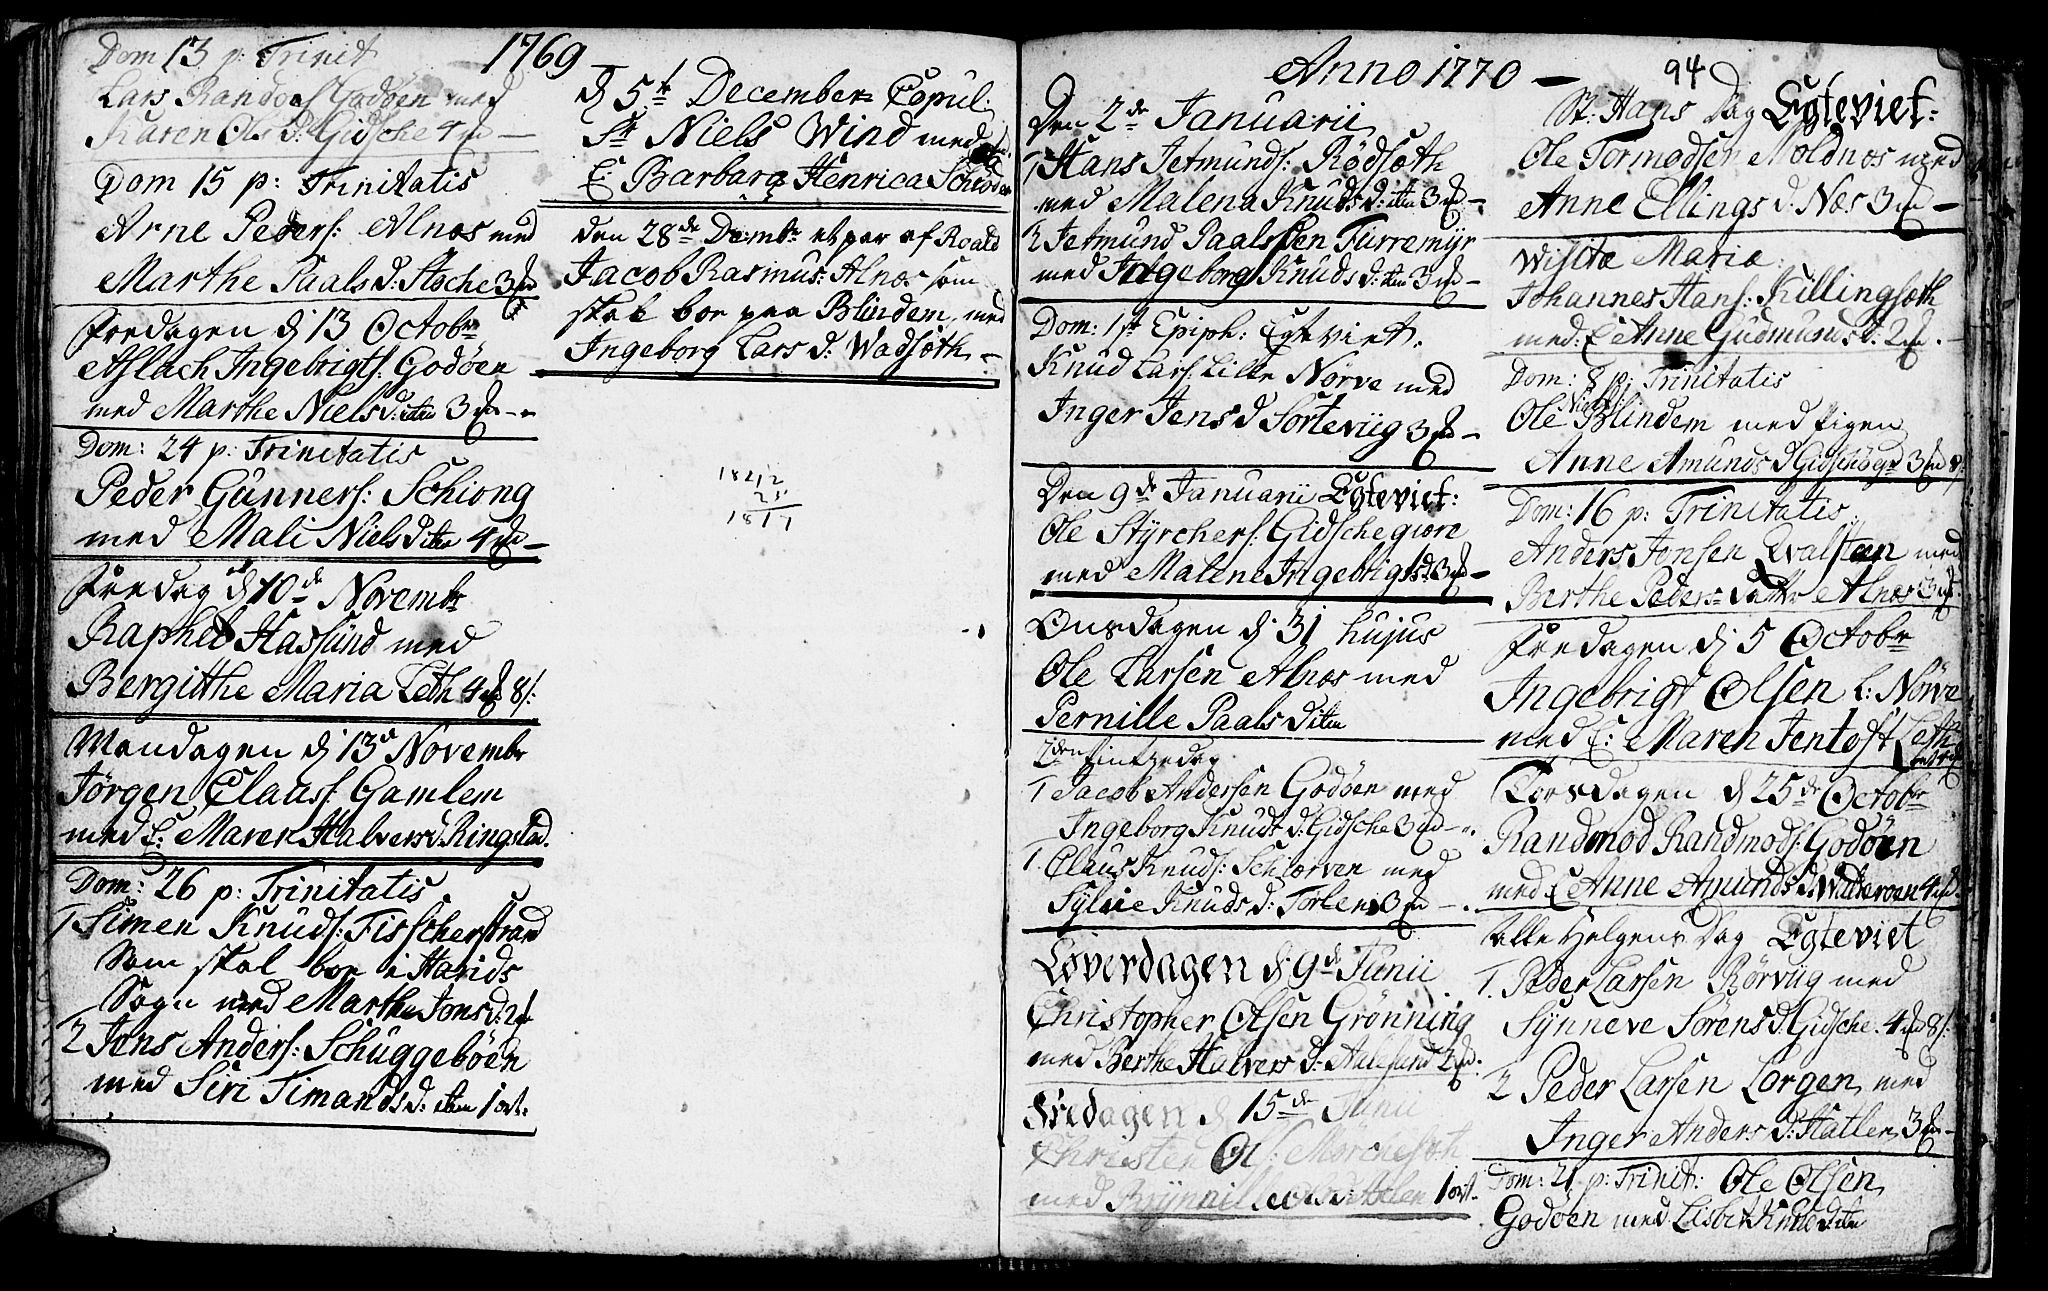 1769
Dom 13 p: Trinit
Lars Randers Godøen med
Karen Ols d. Gidsche 4
Dom 15 p: Trinitatis
Arne Peders: Alnæs med
Marthe Paals d: Støche 3
Fredagen d 13 Octobr
Aslach Ingebrigts. Godøen
med Marthe Niels d: item 3
Dom: 24 p: Trinitatis
Peder Gunners: Schiong
med Mali Niels d item 4
Fredag d 10de Novembr
Raphel Haslund med
Bergitthe Maria Leth 4 8/:
Mandagen d 13de Novembr
Jörgen Clauss. Gamlem
med E: Maren Halvers d. Ringstad.
Dom: 26 p: Trinitatis
1 Simen Knuds: Fisscherstrand
Som skal boe i Harids
Sogn med Marthe Jons d: 2
2 Jens Anders: Schuggebøen
med Siri Timands d: item 1 ort.
d 5te December Copul:
Sr Niels Wind med
E: Barbara Henrica
den 28de Decembr et par af Roald
Jacob Rasmus: Alnæs som
skal boe paa Blindem, med
Ingeborg Lars d: Wadsæth
1842
25
1817
Anno 1770
94
Den 2de Januarii
1 Hans Jetmunds: Rödsæth
med Malena Knuds d: item 3
2 Jetmund Paalssen Furremyr
med Ingeborg Knuds d: item 3
Dom: 1ste Epiph: Egteviet.
Knud Lars: Lille Nørve med
Inger Jens d Sorteviig 3
Den 9de Januarii Egteviet:
Ole Styrchers: Gidschegiöre
med Malene Ingebrigts d. 3
Onsdagen d 31 hujus
Ole Larsen Alnæs med
Pernille Paals d item
2den Pintzedag
1 Jacob Andersen Godöen med
Ingeborg Knuds d: Gidsche 3
1 Claus Knuds: Schiærven med
Sylvie Knuds d: Torlen 3
Løverdagen d 9de Junii
Christopher Olsen Grönning
med Berthe Halvers d: Aalesund 2
Fredagen d 15de Junii
Christen Ols:
med 1 ort.
St: Hans Dag Egteviet:
Ole Tormodsen Moldnæs med
Anne Ellings d: Næs 3
Wisitæ Mariæ
Johannes Hans: Killingsæth
med: E Anne Gudmunds d: 2
Dom: 8 p: Trinitatis
Niels:
Ole Blindem med Pigen
Anne Amunds d 3 8/:
Dom: 16 p: Trinitatis.
Anders Jonsen Qvalsteen med
Berthe Peders datter Alnæs 3
Fredagen d 5 Octobr
Ingebrigt Olsen l: Nørve
med E: Maren Jentoft Leth
Torsdagen d 25de Octobr
Randmod Randmods: Godöen
med E Anne Amunds d: 4
Alle Helgens Dag Egteviet
1. Peder Larsen Rörvüg med
Synneve Sörens d. Gidsche. 4 8/:
2 Peder Larsen Lorgen, med
Inger Anders d: Hatlen 3
Dom: 21 p: Trinit: Ole Olsen
Godöen med Lisbet item